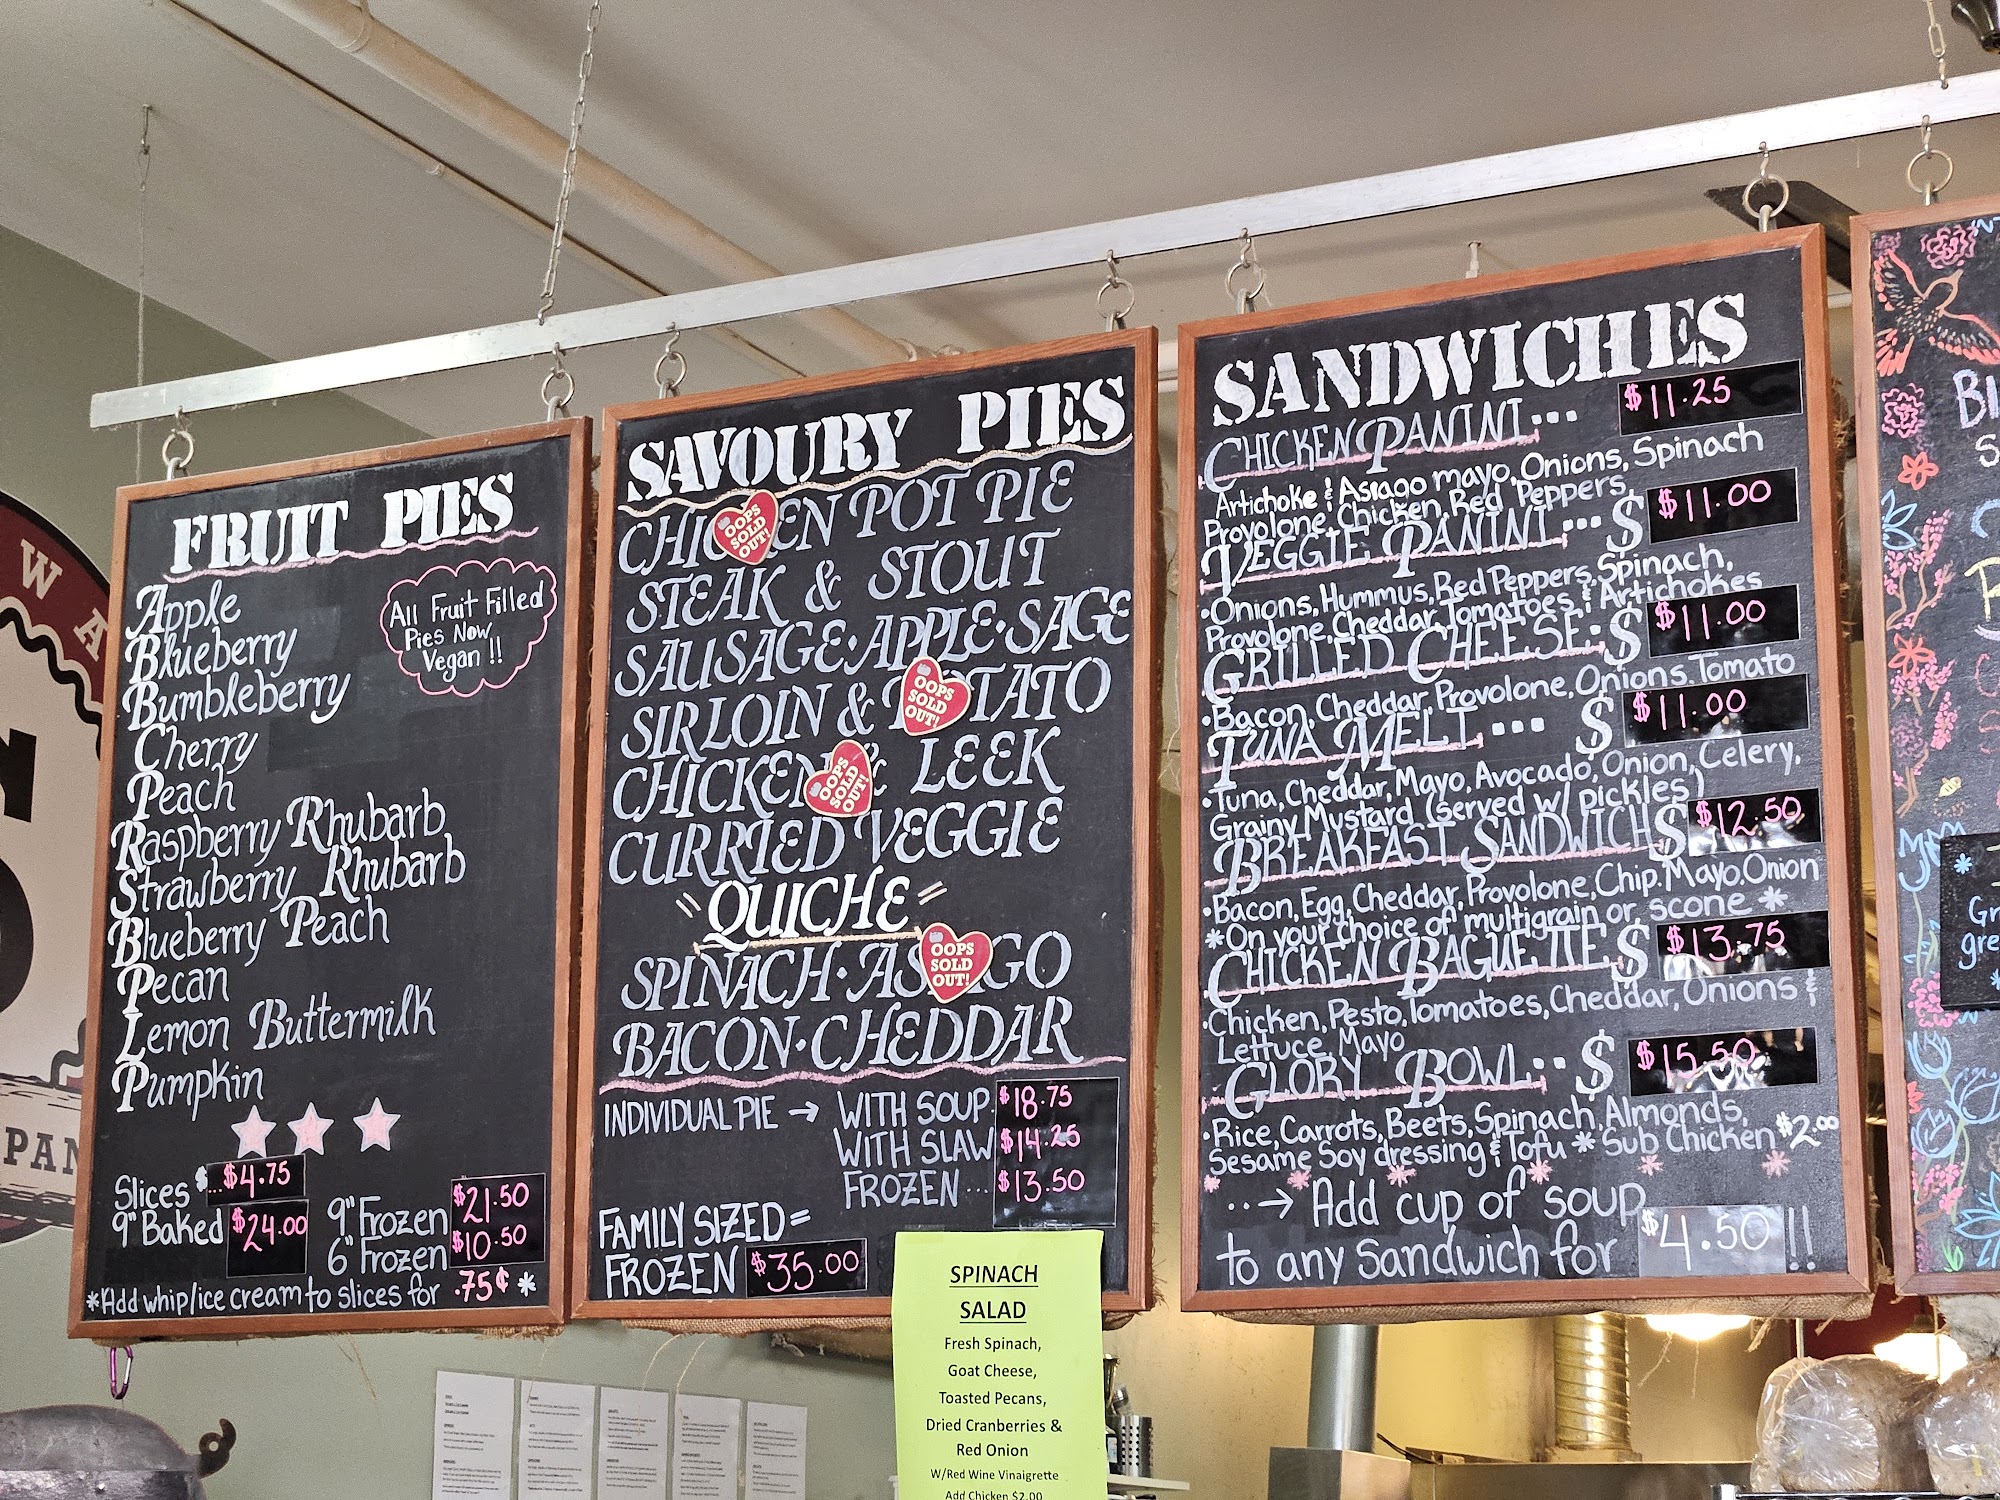 FRUIT PIES
All Fruit Filled
Pies Now
Vegan !!
Apple
Blueberry
Bumbleberry
Cherry
Peach
Raspberry Rhubarb
Strawberry Rhubarb
Blueberry Peach
Pecan
Lemon Buttermilk
Pumpkin
Slices $... $4.75
9" Baked $24.00
9" Frozen $21.50
6" Frozen $10.50
*Add whip/ice cream to slices for .75¢ *
SAVOURY PIES
CHICKEN POT PIE
OOPS SOLD OUT!
STEAK & STOUT
SAUSAGE·APPLE·SAGE
SIRLOIN & POTATO
OOPS SOLD OUT!
CHICKEN & LEEK
OOPS SOLD OUT!
CURRIED VEGGIE
"QUICHE"
SPINACH·ASIAGO
OOPS SOLD OUT!
BACON·CHEDDAR
INDIVIDUAL PIE → WITH SOUP $18.75
WITH SLAW $14.25
FROZEN... $13.50
FAMILY SIZED =
FROZEN $35.00
SPINACH
SALAD
Fresh Spinach,
Goat Cheese,
Toasted Pecans,
Dried Cranberries &
Red Onion
W/Red Wine Vinaigrette
Add Chicken $2.00
SANDWICHES
CHICKEN PANINI... $11.25
Artichoke & Asiago mayo, Onions, Spinach
Provolone, Chicken, Red Peppers,
VEGGIE PANINI...$ $11.00
·Onions, Hummus, Red Peppers, Spinach,
Provolone, Cheddar, Tomatoes, & Artichokes
GRILLED CHEESE:$ $11.00
·Bacon, Cheddar, Provolone, Onions, Tomato
TUNA MELT... $ $11.00
·Tuna, Cheddar, Mayo, Avocado, Onion, Celery,
Grainy Mustard (served w/ pickles)
BREAKFAST SANDWICH $ $12.50
·Bacon, Egg, Cheddar, Provolone, Chip. Mayo, Onion
*On your choice of multigrain or scone *
CHICKEN BAGUETTE $ $13.75
·Chicken, Pesto, Tomatoes, Cheddar, Onions &
Lettuce, Mayo
GLORY BOWL..$ $15.50
·Rice, Carrots, Beets, Spinach, Almonds,
Sesame Soy dressing & Tofu * Sub Chicken $2.00
..→ Add cup of soup
to any Sandwich for $4.50 !!